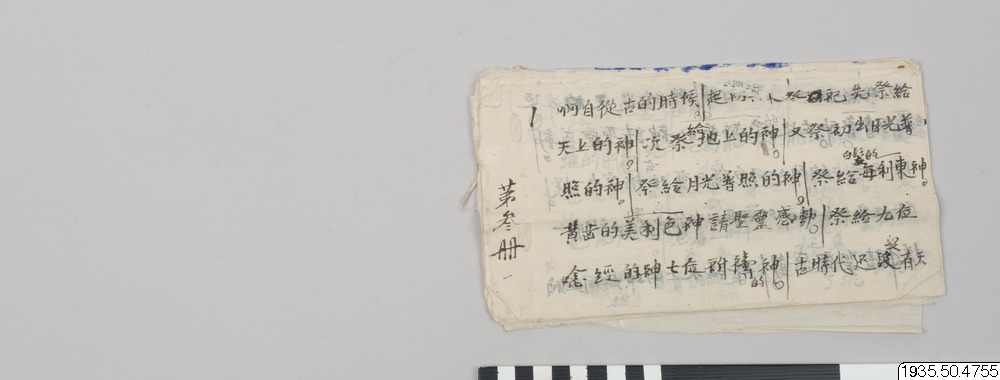 啊自從古的時候起 祭 祀先祭給
天上的神次祭給地上的神又祭初出日光普
照的神祭給月光普照的神祭給白髮的每利東神
黃齒的美利色神請聖靈感動祭給九位
唸經的神七位祈禱的神古時代 沒有天
第叁冊一
1935.50.4755